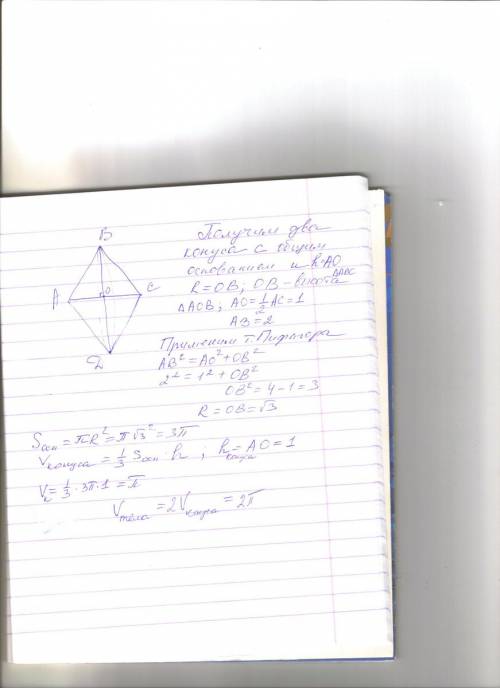 B
A
O
C
D
Получим два
конуса с общим
основанием и h=AO
R = OB; OB - высота ΔABC
ΔAOB; AO = 1/2 AC = 1
AB = 2
Применим т. Пифагора
AB² = AO² + OB²
2² = 1² + OB²
OB² = 4 - 1 = 3
R = OB = √3
Sосн = πR² = π√3² = 3π
Vконуса = 1/3 Sосн · h ; hконуса = AO = 1
Vк = 1/3 · 3π · 1 = π
Vтела = 2Vконуса = 2π